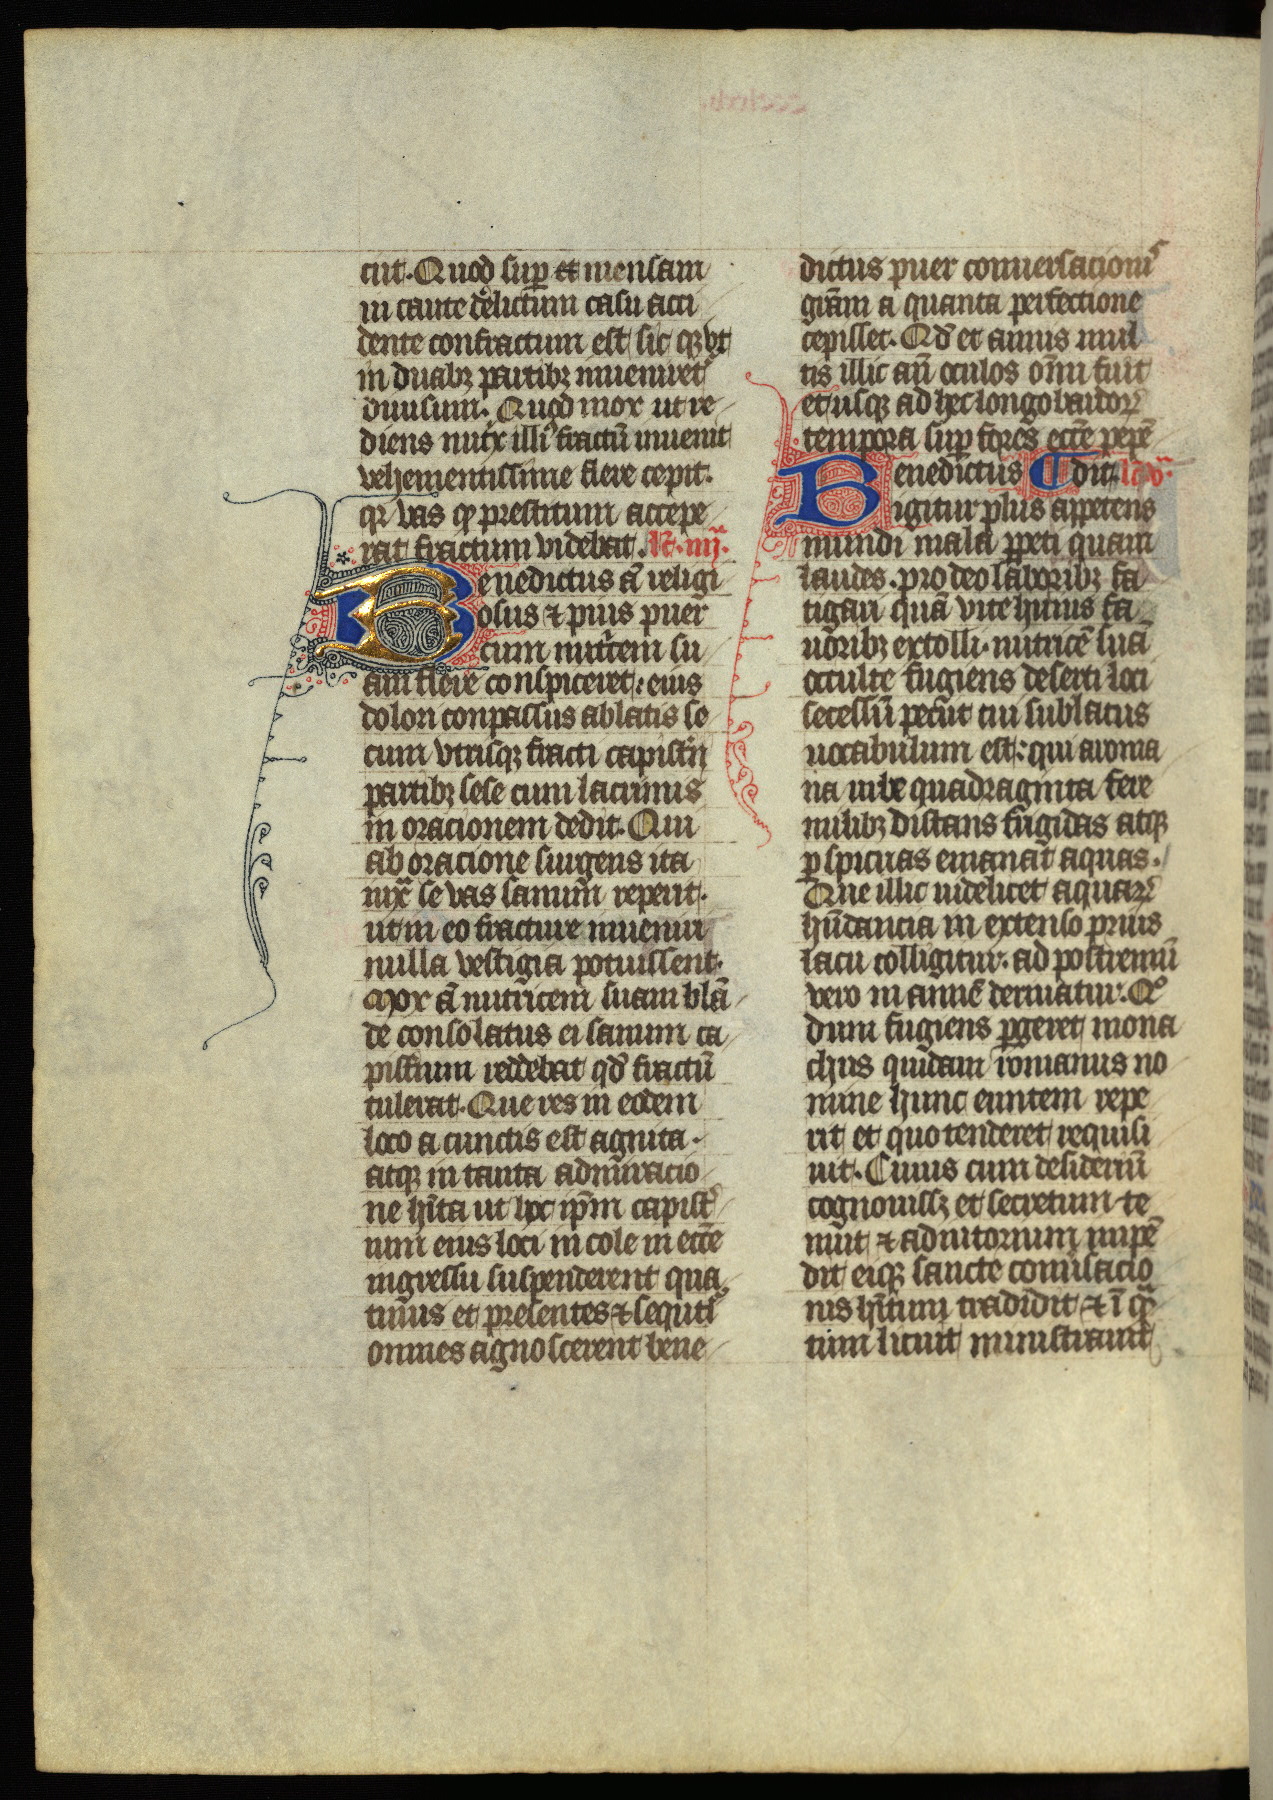 cut. Quod sup et mensam
in caute delictum casu acci
dente confractum est sic qȝ vt
in duabȝ partibȝ inueniret
diuisum. Quod mox ut re
diens nutx illi fractū inuenit
vehementissime flere cepit.
qr vas qd prestitum accepe
rat fractum videbat. L. iiij.
Benedictus ā religi
osus & pius puer
cum nutcem su
am flere conspiceret: eius
dolori conpassus ablatis se
cum vtrisqȝ fracti capistri
partibȝ sese cum lacrimis
in oracionem dedit. Qui
ab oracione surgens ita
iux se vas sanum reperit.
ut in eo fracture inueniri
nulla vestigia potuissent.
Mox ā nutricem suam blā
de consolatus ei sanum ca
pistrium reddebat qd fractū
tulerat. Que res in eodem
loco a cunctis est agnita.
atqȝ in tanta admiracio
ne hīta ut hoc ipm capist
rium eius loci incole in ecce
ingressu suspenderent qua
tinus et presentes & sequtī
omnes agnoscerent bene
dictus puer conuersacionis
grām a quanta perfectione
cepisset. Qd et annis mul
tis illic añ oculos oīm fuit
et usqȝ ad hec longobardoꝝ
tempora sup fores ecce pepē
Benedictus dit. L. v.
igitur plus appetens
mundi mala ppeti quam
laudes. pro deo laboribȝ fa
tigari quā vite huius fa
uoribȝ extolli. nutricē suā
occulte fugiens deserti loci
secessū peciit cui sublacus
uocabulum est: qui a roma
na urbe quadraginta fere
milibȝ distans frigidas atqȝ
pspicuas emanat aquas.
Que illic uidelicet aquaꝝ
hūdancia in extenso prius
lacu colligitur. ad postremū
vero in annē deriuatur. Qo
dum fugiens pgeret mona
chus quidam romanus no
mine hunc euntem repe
rit et quo tenderet requisi
uit. Cuius cum desideriū
cognouissȝ et secretum te
nuit & adiutorium inpē
dit eiqȝ sancte conuersacio
nis hītum tradidit & ī qn
tum licuit ministrauit